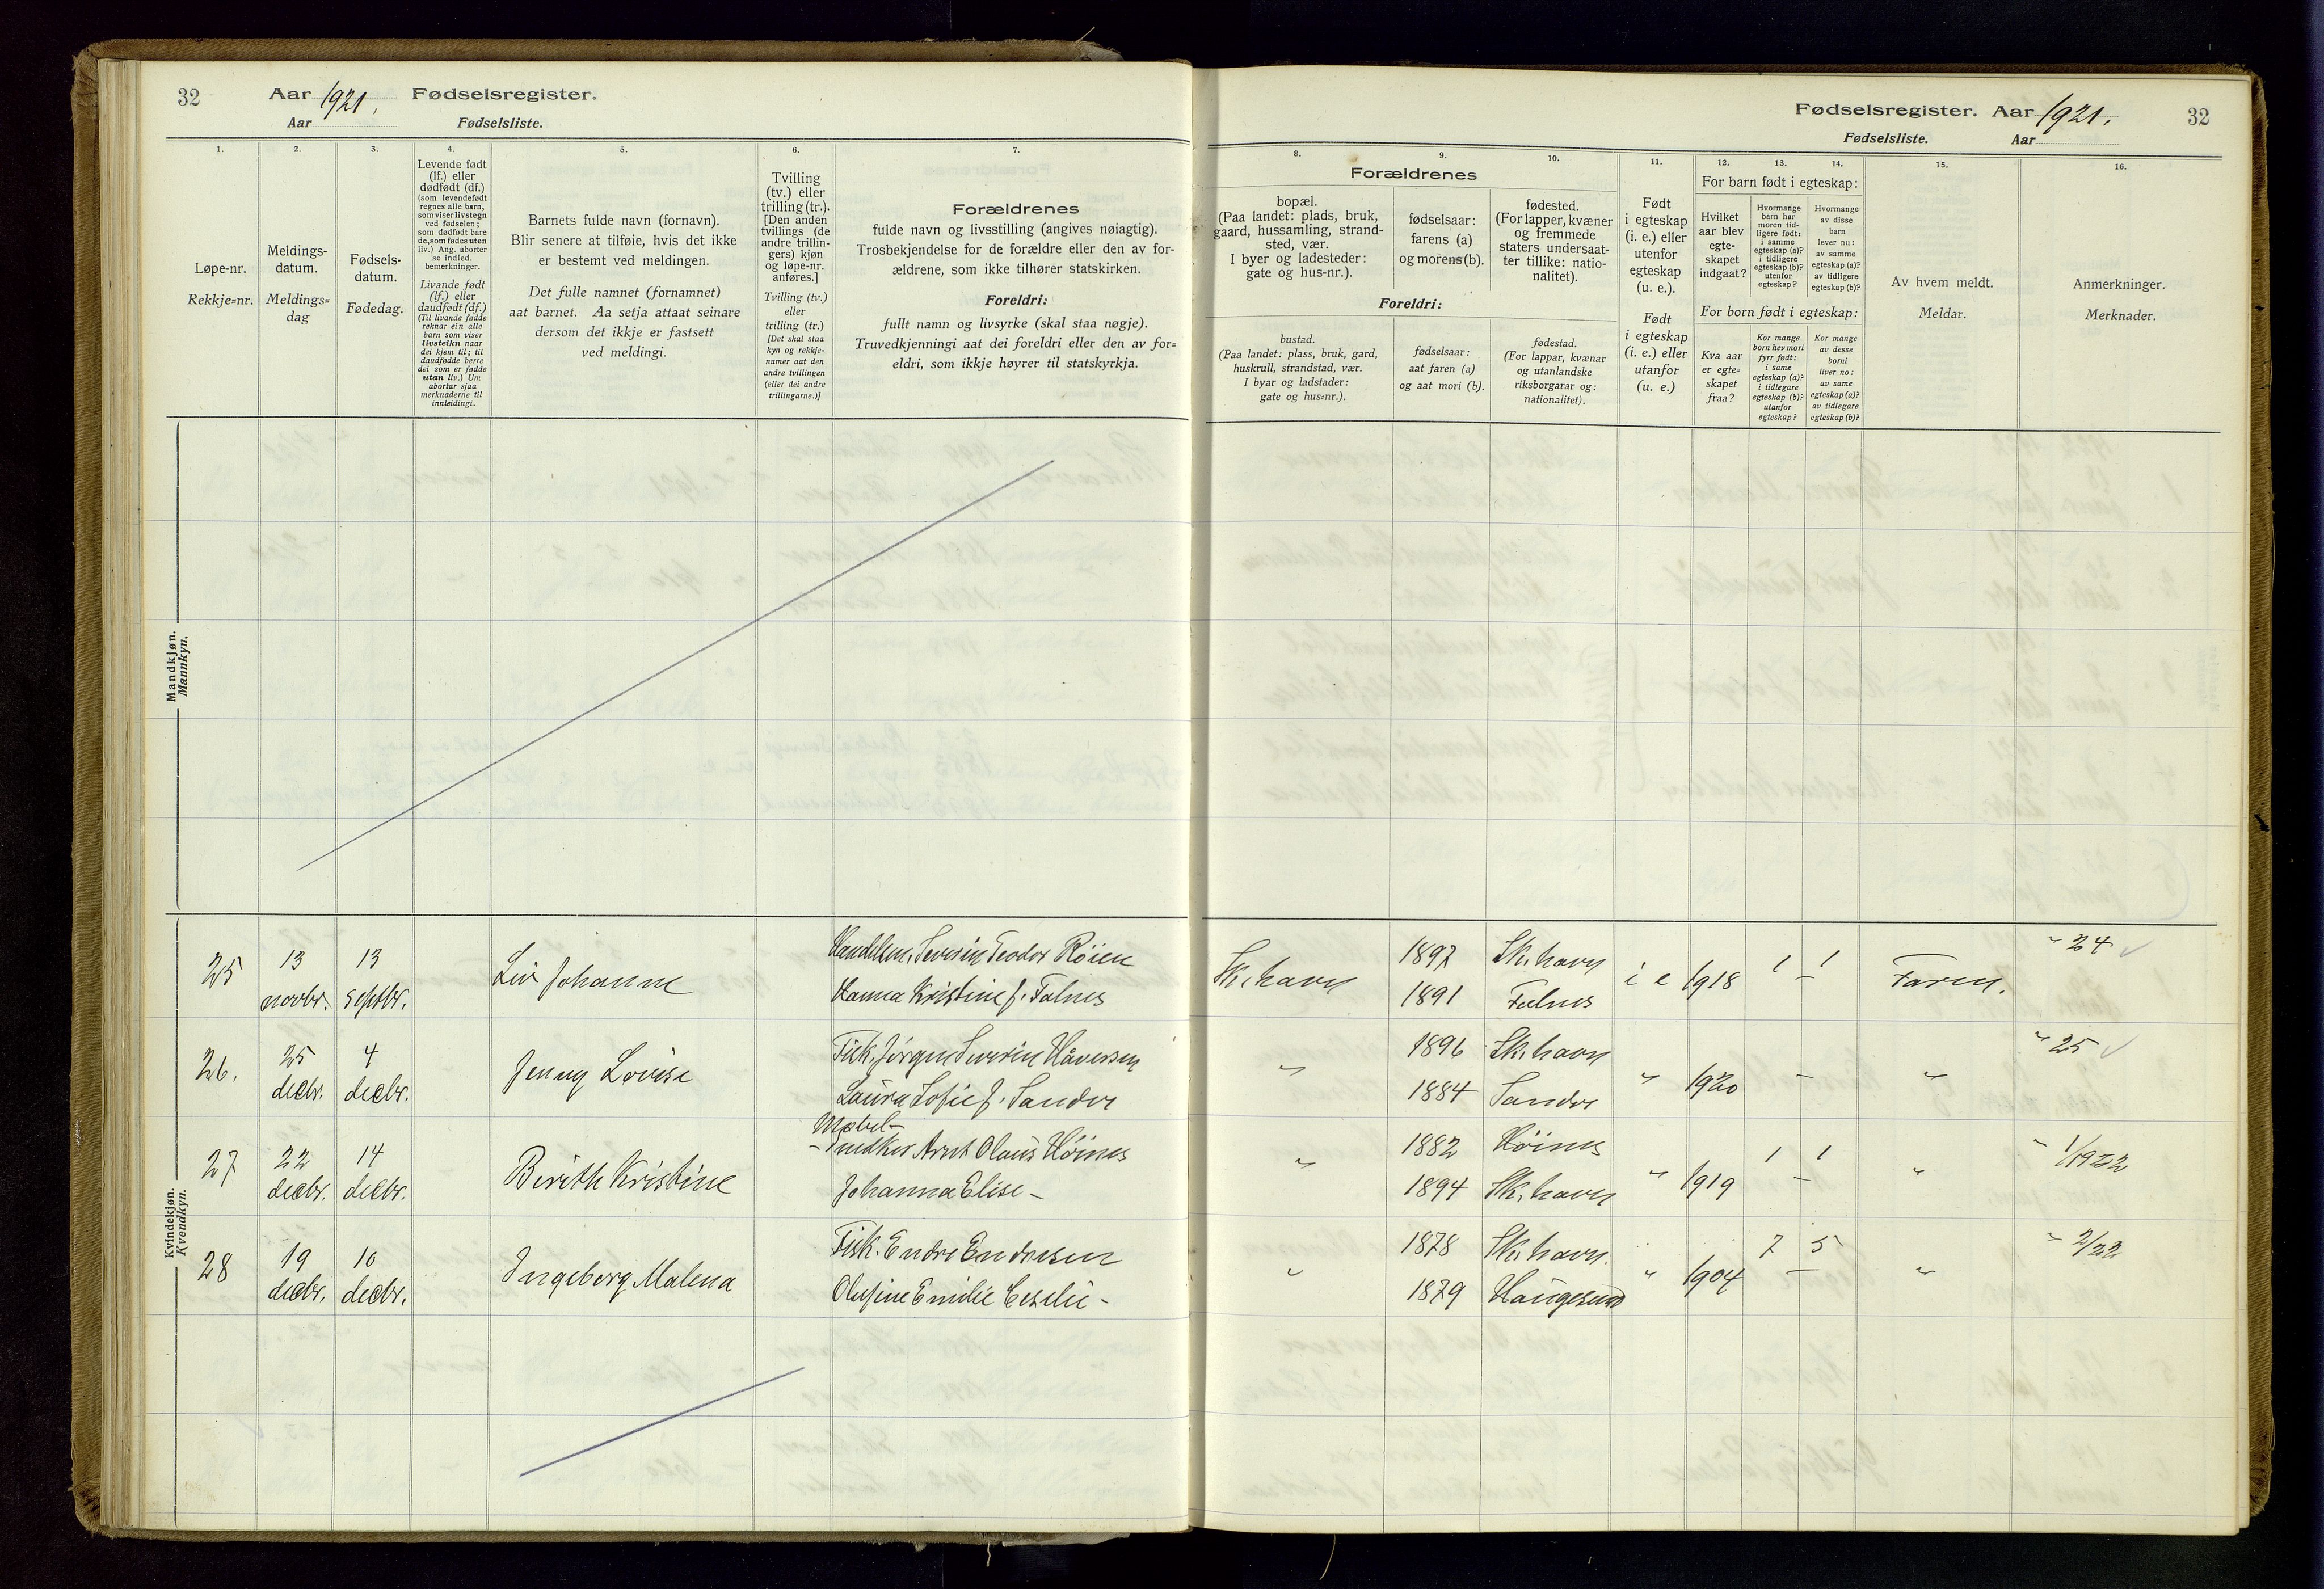 32
Aar 1921. Fødselsregister.
Aar Fødselsliste.
Fødselsregister. Aar 1921.
Fødselsliste. Aar
32
1. 2. 3. 4. 5. 6. 7. 8. 9. 10. 11. 12. 13. 14. 15. 16.
Løpe-nr.
Rekkje=nr.
Meldings-
datum.
Meldings=
dag
Fødsels-
datum.
Fødedag.
Levende født
(lf.) eller
dødfødt (df.)
(som levendefødt
regnes alle barn,
som viser livstegn
ved fødselen;
som dødfødt bare
de, som fødes uten
liv.) Ang. aborter
se indled.
bemerkninger.
Livande født
(lf.) eller
daudfødt (df.)
(Til livande fødde
reknar ein alle
barn som viser
livsteikn naar
dei kjem til; til
daudfødde berre
dei som er fødde
utan liv.) Um
abortar sjaa
merknaderne til
innleidingi.
Barnets fulde navn (fornavn).
Blir senere at tilføie, hvis det ikke
er bestemt ved meldingen.
Det fulle namnet (fornamnet)
aat barnet. Aa setja attaat seinare
dersom det ikkje er fastsett
ved meldingi.
Tvilling
(tv.) eller
trilling (tr.).
[Den anden
tvillings (de
andre trillin-
gers) kjøn
og løpe-nr.
anføres.]
Tvilling (tv.)
eller
trilling (tr.)
[Det skal staa
kyn og rekkje-
numer aat den
andre tvillingen
(eller dei andre
trillingarne.)]
Forældrenes
fulde navn og livsstilling (angives nøiagtig).
Trosbekjendelse for de forældre eller den av for-
ældrene, som ikke tilhører statskirken.
Foreldri:
fullt namn og livsyrke (skal staa nøgje).
Truvedkjenningi aat dei foreldri eller den av for=
eldri, som ikkje høyrer til statskyrkja.
Forældrenes
bopæl.
(Paa landet: plads, bruk,
gaard, hussamling, strand-
sted, vær.
I byer og ladesteder:
gate og hus-nr.).
fødselsaar:
farens (a)
og morens (b).
fødested.
(For lapper, kvæner
og fremmede
staters undersaat-
ter tillike: natio-
nalitet).
Foreldri:
bustad.
(Paa landet: plass, bruk, gard,
huskrull, strandstad, vær.
I byar og ladstader:
gate og hus=nr.).
fødselsaar:
aat faren (a)
og aat mori (b).
fødestad.
(For lappar, kvænar
og utanlandske
riksborgarar og:
nationalitet).
Født
i egteskap
(i. e.) eller
utenfor
egteskap
(u. e.).
Født
i egteskap
(i. e.) eller
utanfor
(u. e.)
For barn født i egteskap:
Hvilket
aar blev
egte-
skapet
indgaat?
Hvormange
barn har
moren tid-
ligere født:
i samme
egteskap (a)?
i tidligere
egteskap (b)?
utenfor
egteskap?
Hvormange
av disse
barn
lever nu:
av samme
egteskap (a)?
av tidligere
egteskap (b)?
For born født i egteskap:
Kva aar
er egte=
skapet
fraa?
Kor mange
born hev mori
fyrr født:
i same
egteskap (a)?
i tidlegare
egteskap (b)?
utanfor
egteskap?
Kor mange
av desse
borni
liver no:
av same
egteskap (a)?
av tidlegare
egteskap (b)?
Av hvem meldt.
Meldar.
Anmerkninger.
Merknader.
Mandkjøn.
Mannkyn.
Kvindekjøn.
Kvendkyn.
25 13 13 Liv Johanne Handelsm. Severin Teodor Röien Sk.havn 1892 Sk.havn i e 1918 1 1 Faren. " 24
novbr. septbr. Hanna Kristine f. Falnes 1891 Falnes –
26. 25 4 Jenny Lovise Fisk. Jörgen Severin Håversen " 1896 Sk.havn " 1920 – " " 25
decbr. decbr. Laura Sofie f. Sandve 1884 Sandve
27 22 14 Berith Kristine Møbel-
snedker Arnt Olaus Höines " 1882 Höines " 1919 1 1 " " 1/1922
decbr. decbr. Johanna Elise – 1894 Sk.havn –
28 19 10 Ingeborg Malena Fisk. Endre Endresen " 1878 Sk.havn. " 1904 7 5 " " 2/22
decbr. decbr. Olufine Emilie Ceselie – 1879 Haugesund –